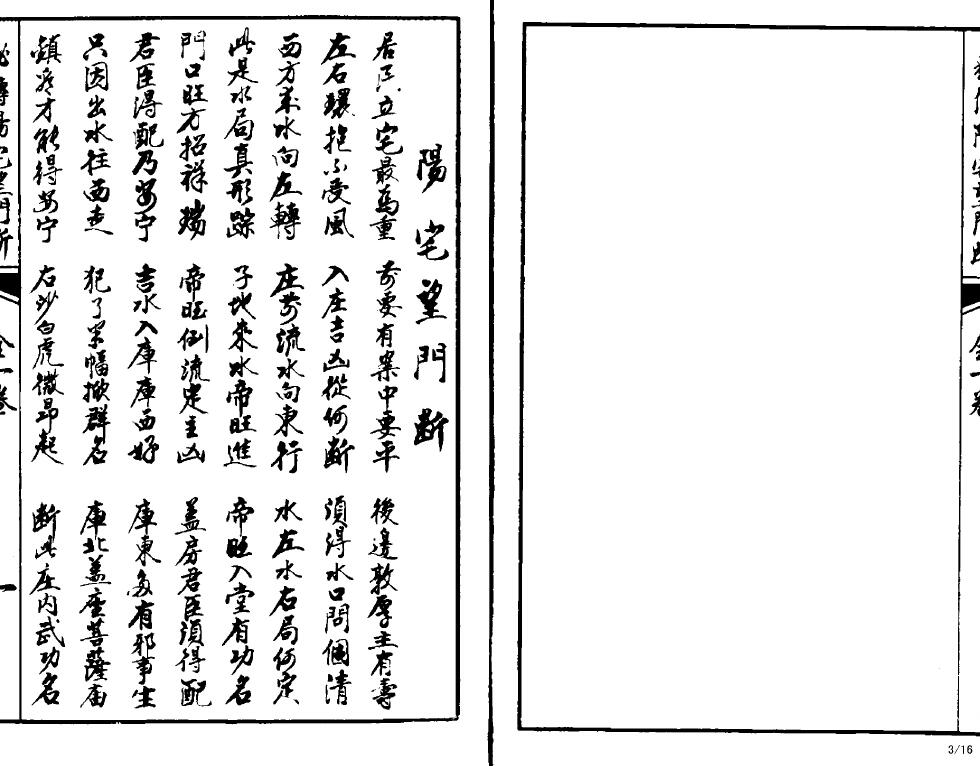 陽宅望門断
居民立宅最爲重 前要有案中要平 後邊敦厚主有壽
左右環抱不受風 入庄吉凶從何断 須得水口問個清
西方来水向左轉 庄前流水向東行 水左水右局何定
此是水局真形踪 子地來水帝旺進 帝旺入堂有功名
門口旺方招祥瑞 帝旺倒流定主凶 盖房君臣須得配
君臣得配乃安宁 吉水入庫庫西好 庫東多有邪事生
只因出水往西走 犯了 幅掀群名 庫北盖座菩薩庙
鎮 才能得安宁 右沙白虎微昂起 断此庄内武功名
秘傳陽宅望門断 全一卷 一
全一卷
3/16